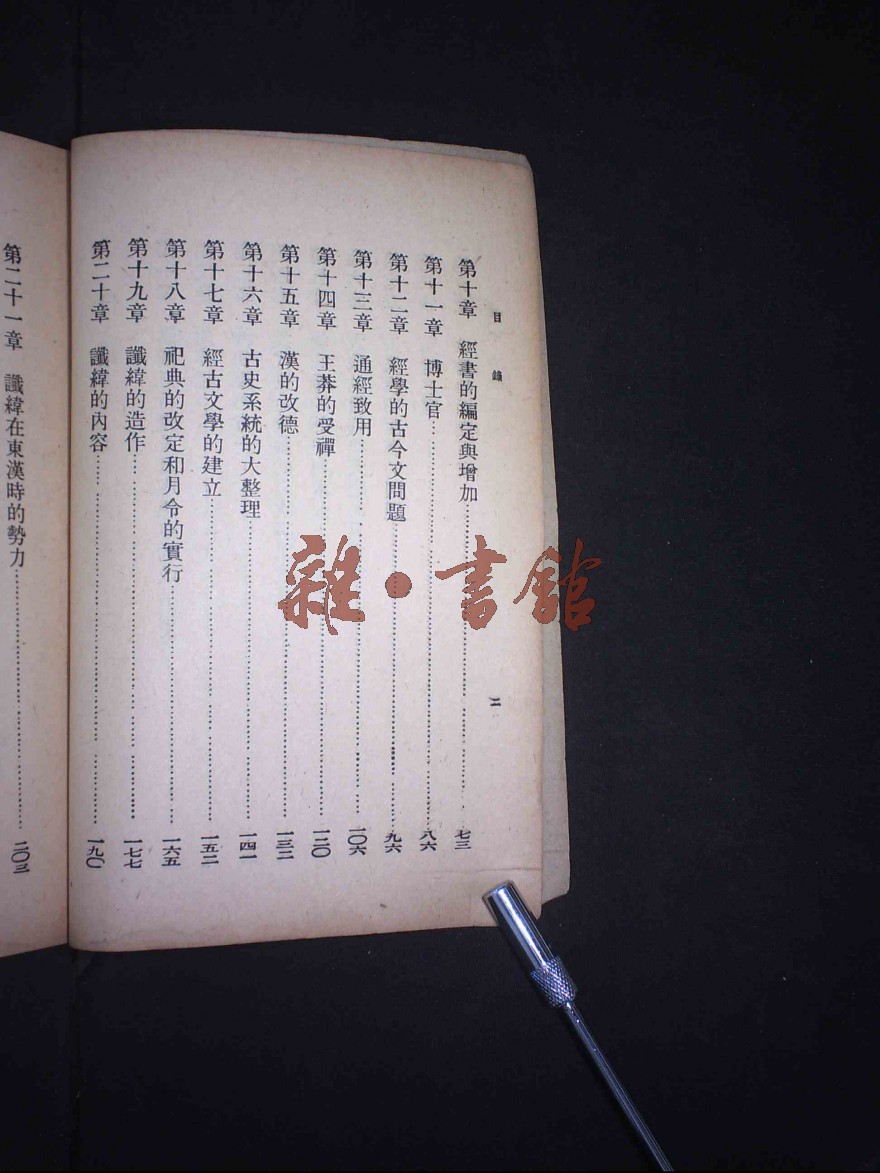 目錄
二
第十章 經書的編定與增加 七三
第十一章 博士官 八六
第十二章 經學的古今文問題 九六
第十三章 通經致用 一〇六
第十四章 王莽的受禪 一二〇
第十五章 漢的改德 一三二
第十六章 古史系統的大整理 一四一
第十七章 經古文學的建立 一五二
第十八章 祀典的改定和月令的實行 一六五
第十九章 讖緯的造作 一七七
第二十章 讖緯的內容 一九〇
第二十一章 讖緯在東漢時的勢力 二〇三
雜·書館